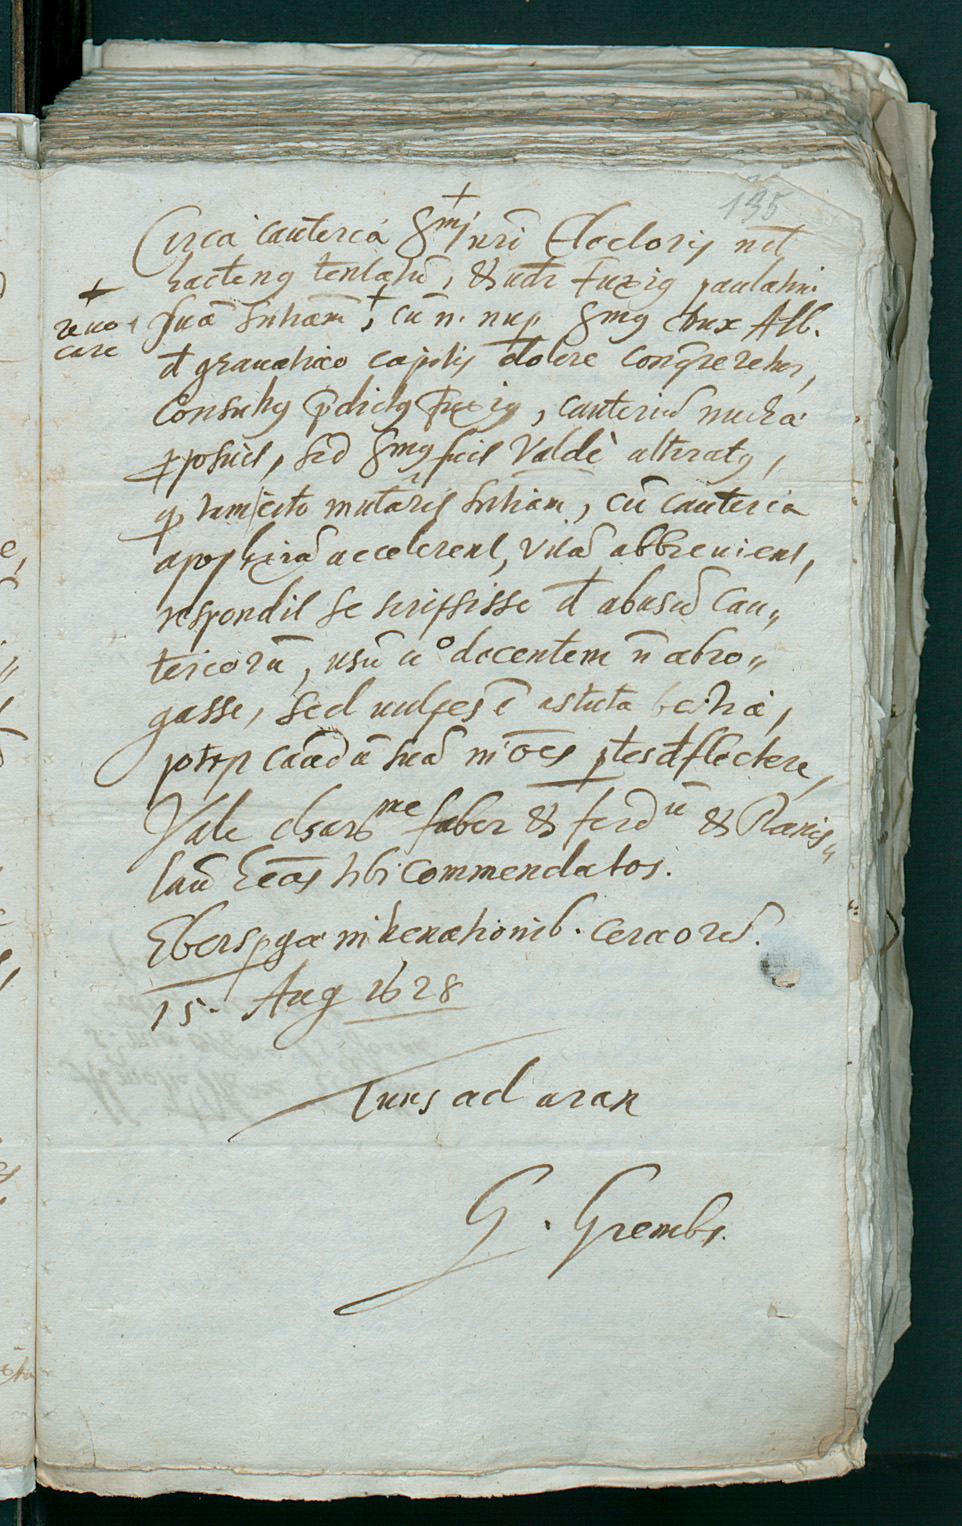 135
Circa cauteria Smi nri Electoris nil
hactenus tentatū, & utr Fuxig paulatim
+ revocare
suā sntiam +, cū n. nup Smg Dux Alb.
đ gravativo capitis dolore conqreretur,
Consultg pdictg Fuxig, cauteriū nucha
pposuit, sed Smg fuit Valdè alteratg,
q tam cito mutaris sntiam, cū cauteria
apoplexiā accelerent, vitā abbrevient,
respondit se scripsisse đ abusū cau„
teriorū, usū u° docentem n̄ abro„
gasse, sed vulpes ē astuta bestia,
potēs caudā suā in ōēs ptes đflectere,
Vale clsarme faber & ferdū & Ranis„
laū meos tibi commendatos.
Ebersperga in venationib. cervorū.
15. Aug 1628
Tuus ad aram
G. Grembs.